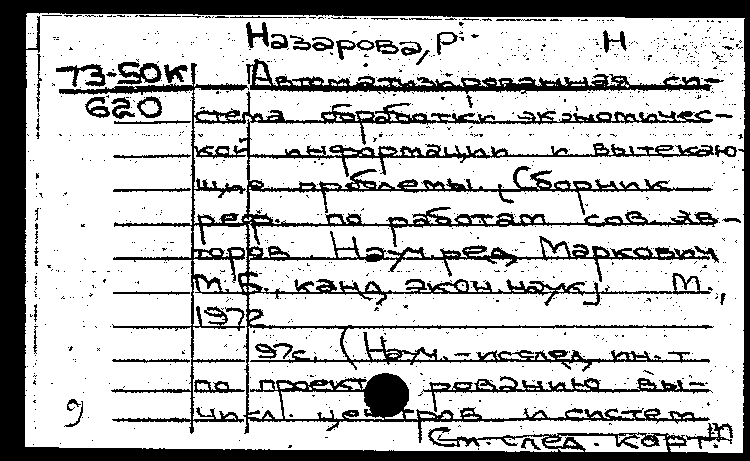 Назарова, Р. Н
73-50К Автоматизированная си-
620 стема обработки экономичес-
кой информации и вытекаю-
щие проблемы. (Сборник
реф. по работам сов. ав-
торов. Науч. ред. Маркович
М.Б., канд. экон. наук). М.,
1972
97с. (Науч.-исслед. ин.-т
по проектированию вы-
числ. центров и систем
См. след. карт.